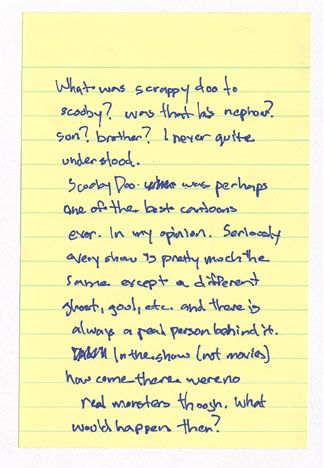 What was scrappy doo to
scooby? was that his nephew?
son? brother? I never quite
understood.
Scooby Doo was perhaps
one of the best cartoons
ever. In my opinion. Seriously
every show is pretty much the
same except a different
ghost, gool, etc. and there is
always a real person behind it.
In the show (not movies)
how come there were no
real monsters though. What
would happen then?